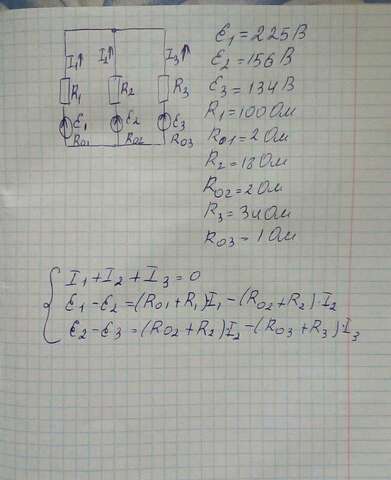 I1↑ I2↑ I3↑
R1 R2 R3
Ɛ1 Ɛ2 Ɛ3
R01 R02 R03
Ɛ1=225В
Ɛ2=156В
Ɛ3=134В
R1=100Ом
R01=2Ом
R2=18Ом
R02=2Ом
R3=34Ом
R03=1Ом
I1+I2+I3=0
Ɛ1-Ɛ2=(R01+R1)I1-(R02+R2)·I2
Ɛ2-Ɛ3=(R02+R2)I2-(R03+R3)·I3